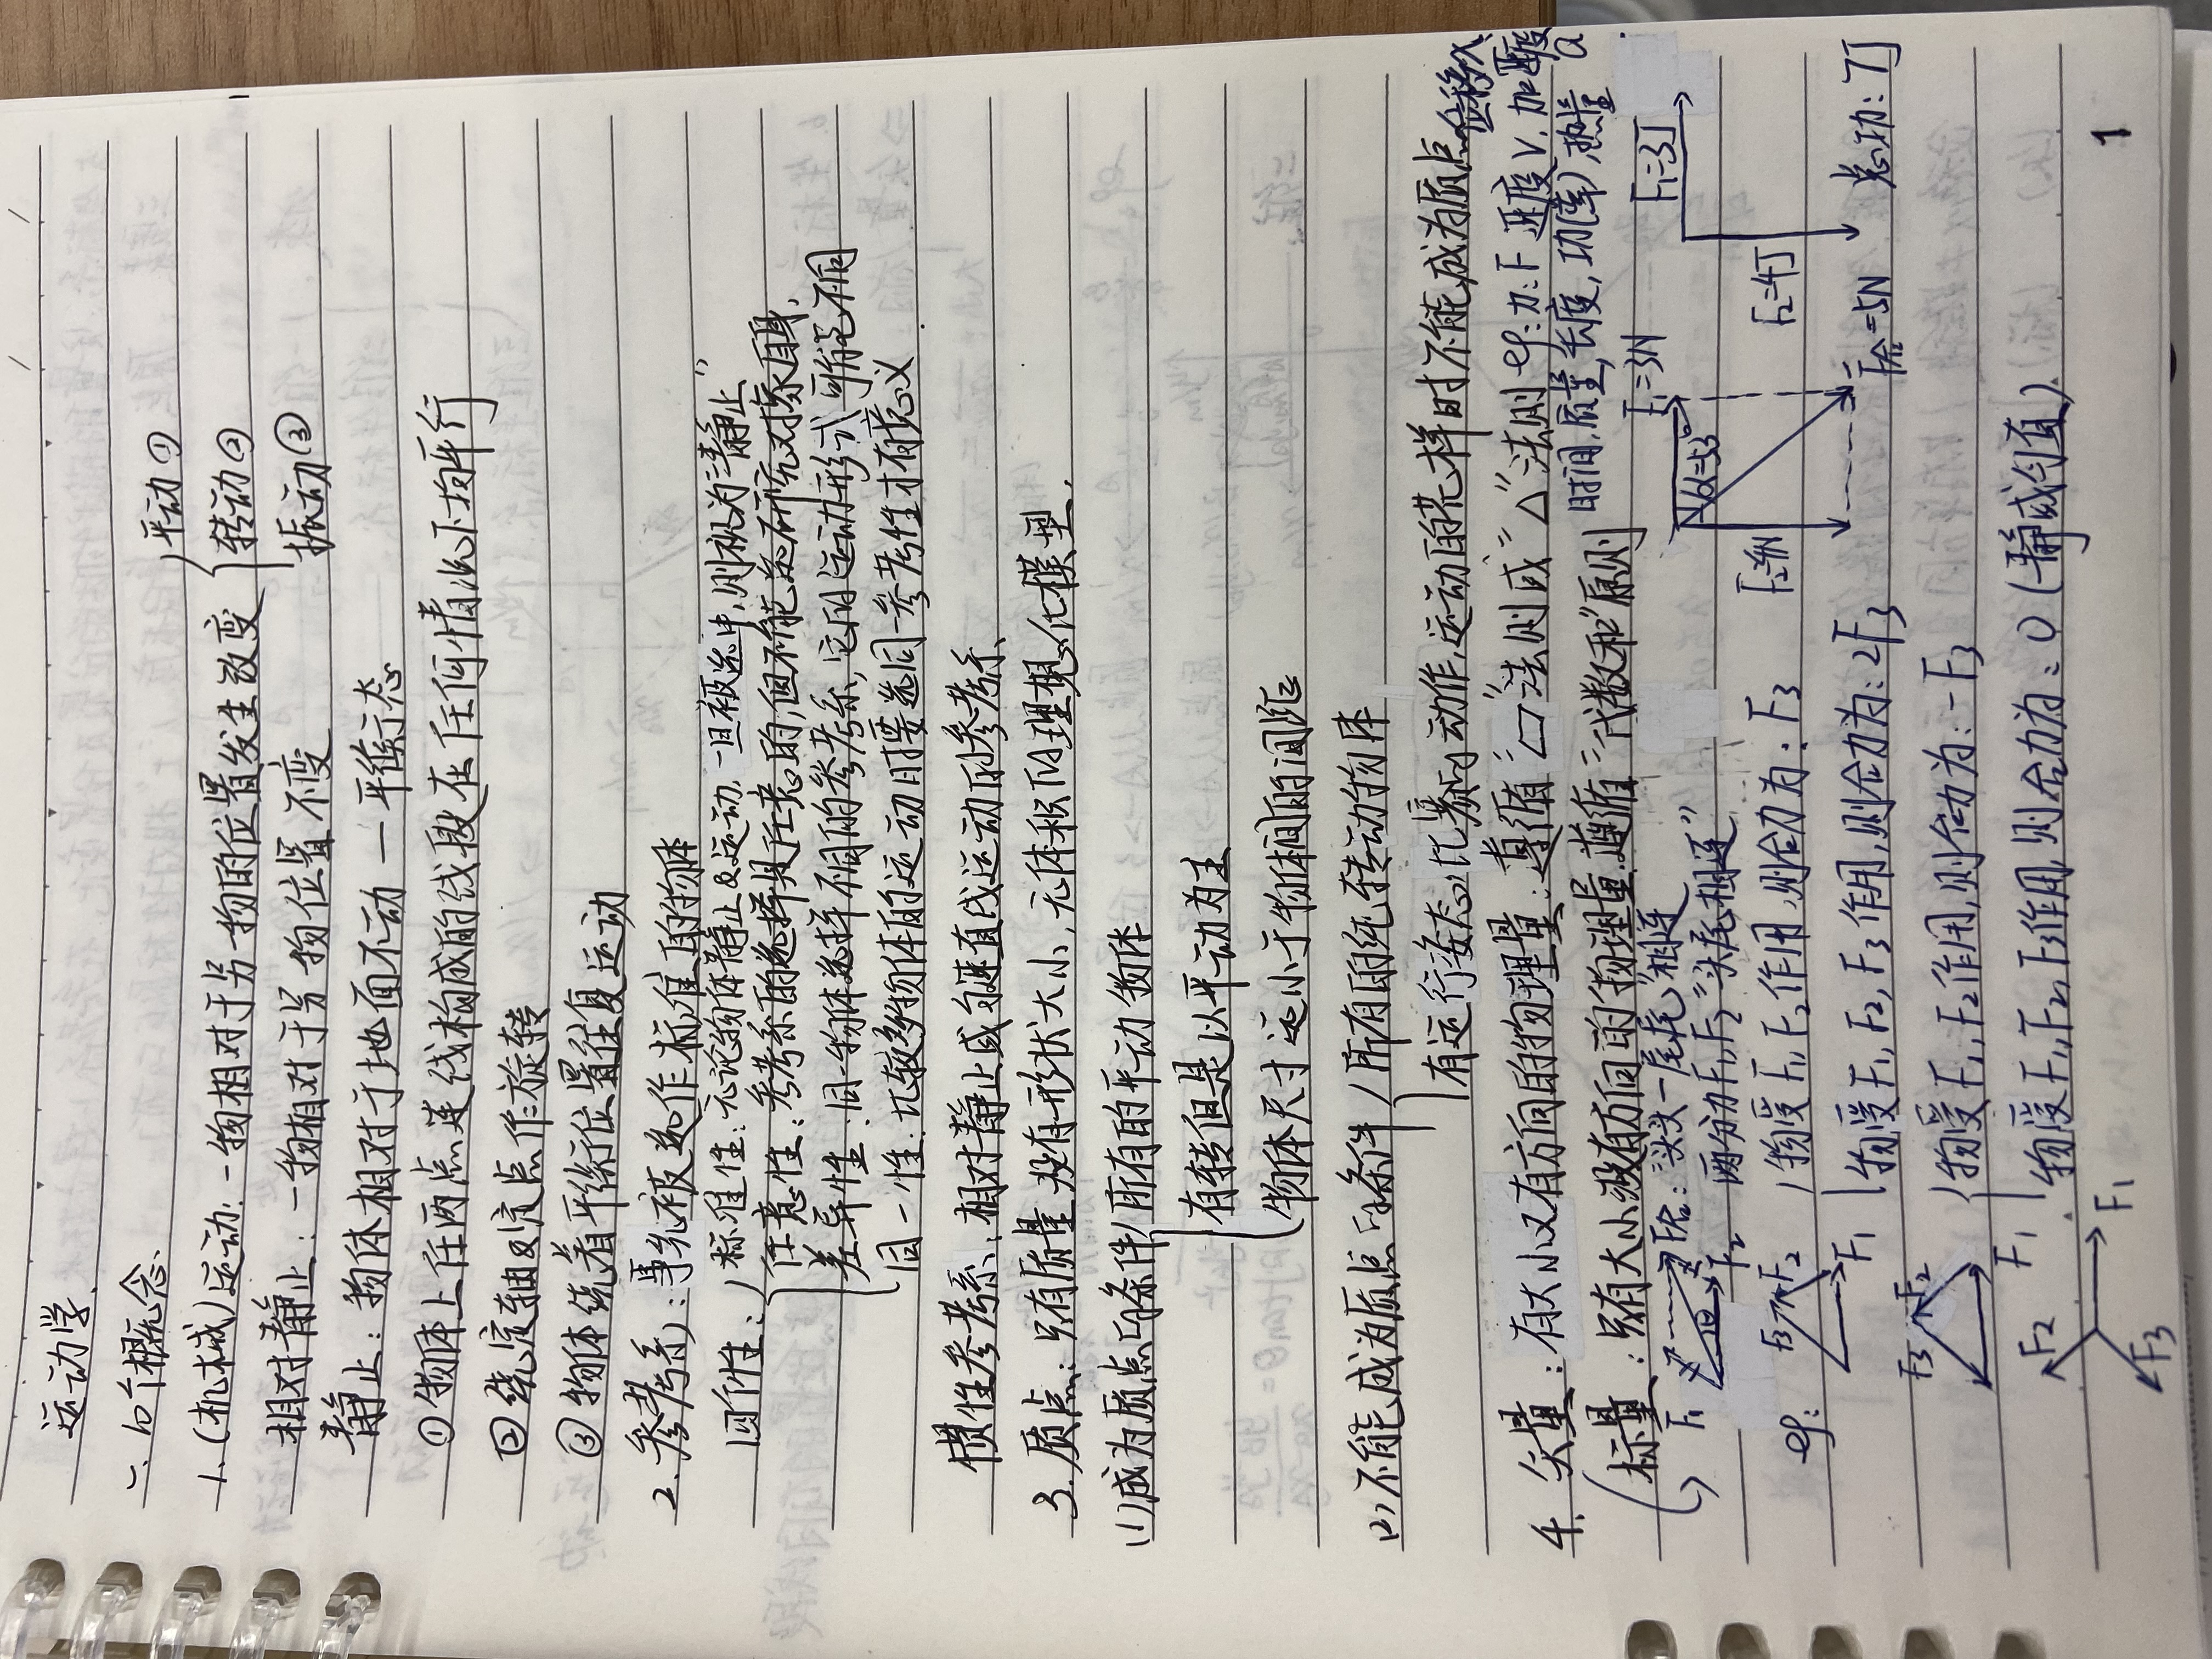 运动学.
一、的概念
1.(机械)运动:一物相对于另一物的位置发生改变 平动①
转动②
振动③
相对静止:一物相对于另一物位置不变
静止:物体相对于地面不动一平衡态
①物体上任两点连线构成的线段在任何情况下均平行
②绕定轴及定点作旋转
③物体绕着平衡位置往复运动
2.参考系:事先被选作标准的物体
四个性: 标准性:无论物体静止及运动,一旦被选中,则视为“静止”
任意性:参考系的选择是任意的,但不能选研究对象自身,
差异性:同一物体选择不同的参考系,它的运动形式可能不同
同一性:比较多物体的运动时要选同一参考性才有意义
惯性参考系:相对静止或匀速直线运动的参考系.
3.质点:只有质量没有形状大小,无体积的理想化模型,
(1)成为质点的条件 所有的平动物体
有转但是以平动为主
物体尺寸远小于物体间的间距
(2)不能成为质点的条件 所有的纯转动的物体
有运行姿态,比赛的动作,运动的花样时不能成为质点
4.矢量:有大小又有方向的物理量:遵循“▱”法则或“△”法则 eg:力:F 速度V,加速度a 位移x
标量:只有大小没有方向的物理量 遵循“代数和”原则 时间,质量,长度,功(率),热量
F合:头头一尾尾相连
两分力F1,F2“头尾相连”
F1
F2
F1=3N
F2=4N
F合=5N
F1=3J
F2=4J
总功:7J
eg:
物受F1,F2作用,则合力为:F3
F3
F2
F1
物受F1,F2,F3作用,则合力为:2F3
物受F1,F2作用,则合力为:-F3
F3
F2
F1
物受F1,F2,F3作用,则合力为:0(静或匀直)
F2
F1
F3
1